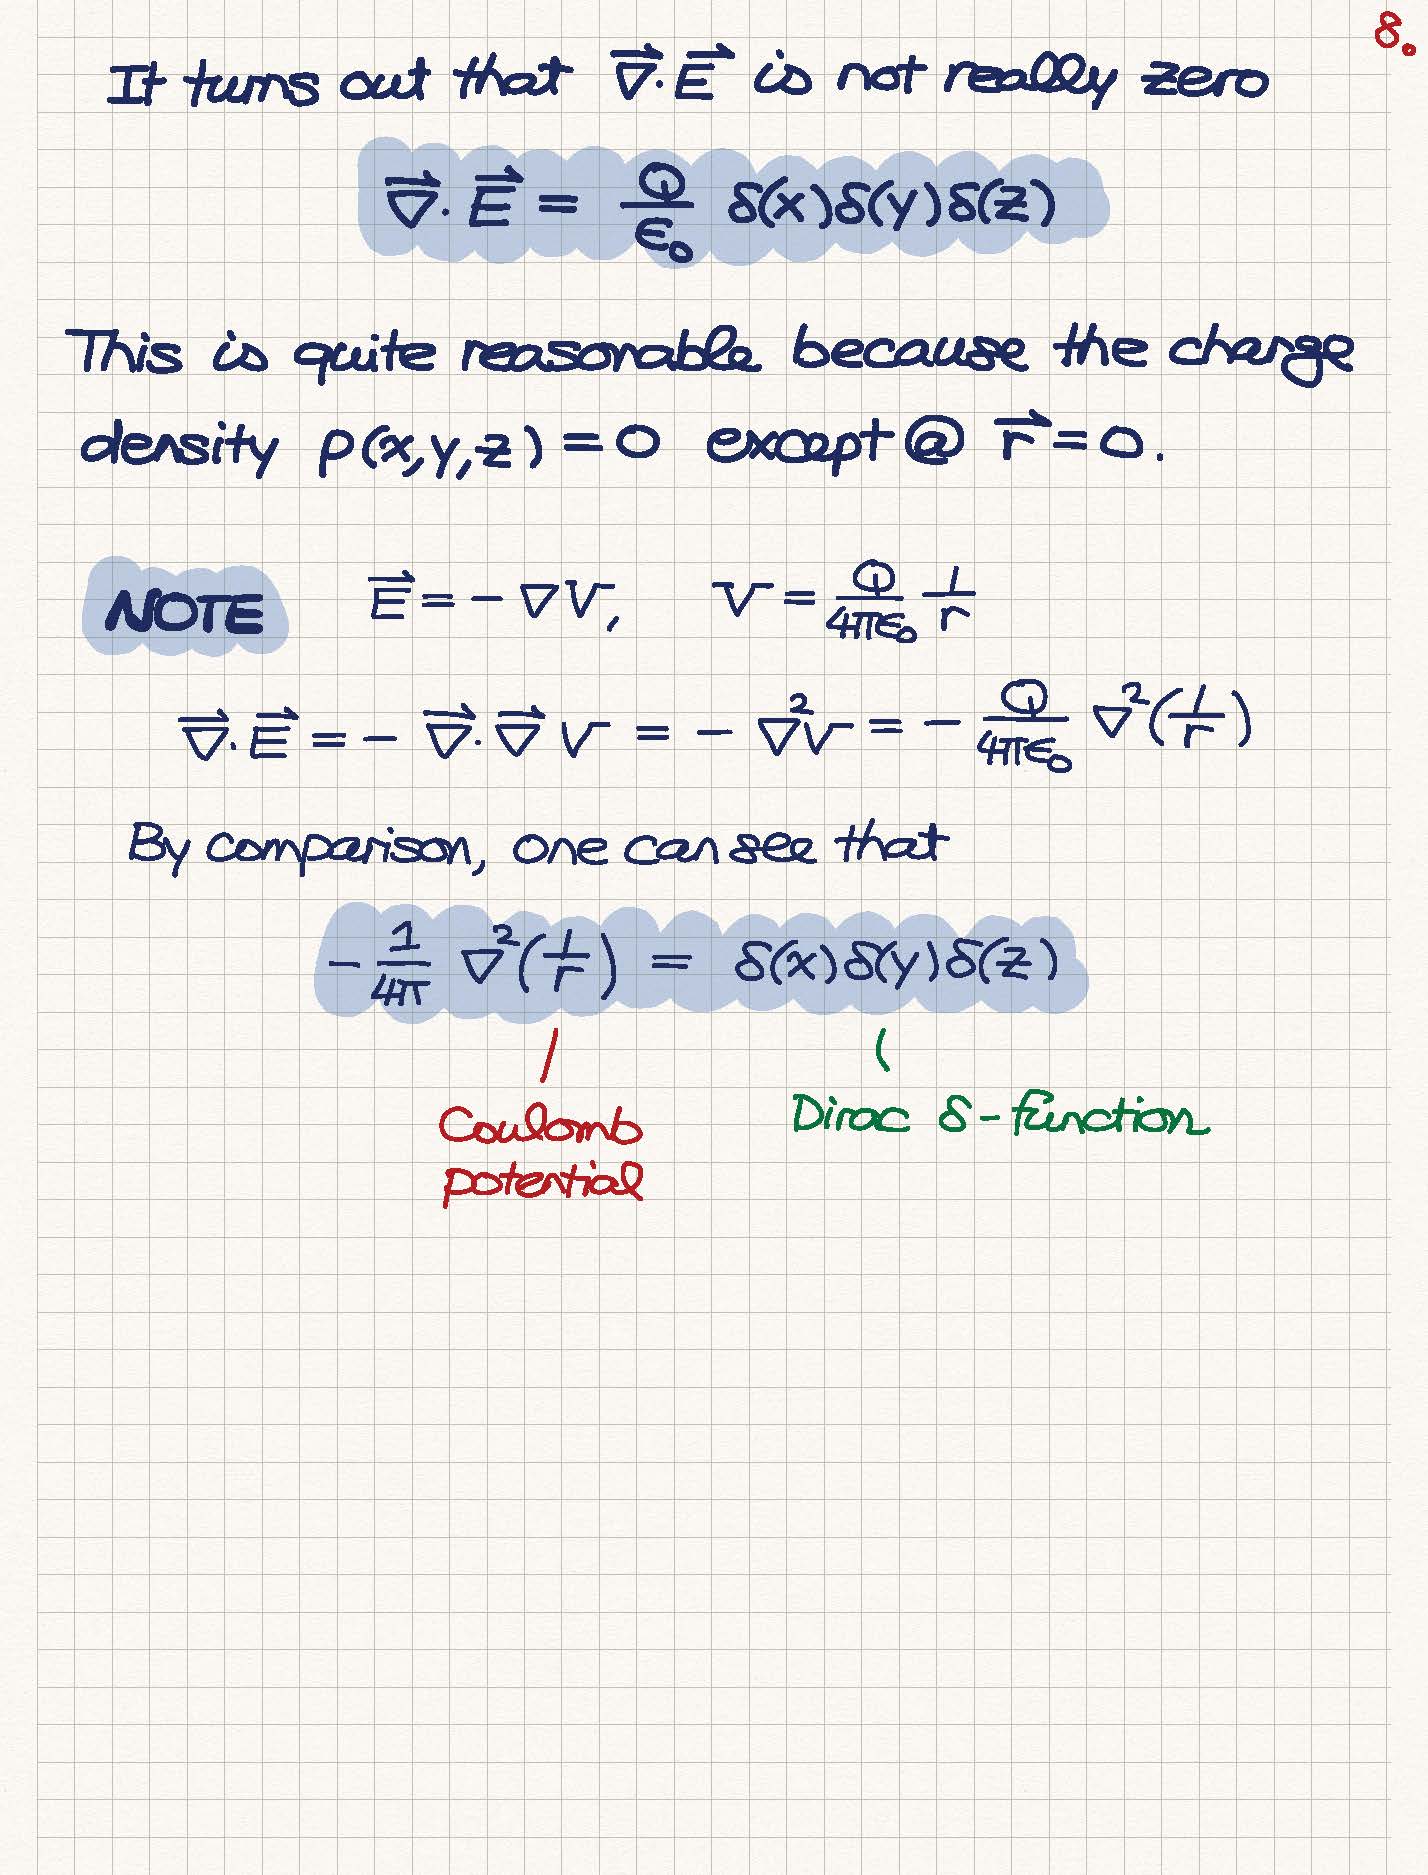 8.
It turns out that ∇⃗·E⃗ is not really zero
∇⃗·E⃗ = Q/ε₀ δ(x)δ(y)δ(z)
This is quite reasonable because the charge
density ρ(x,y,z) = 0 except @ r⃗ = 0.
NOTE E⃗ = - ∇V, V = Q/4πε₀ 1/r
∇⃗·E⃗ = - ∇⃗·∇⃗ V = - ∇²V = - Q/4πε₀ ∇²(1/r)
By comparison, one can see that
- 1/4π ∇²(1/r) = δ(x)δ(y)δ(z)
Coulomb
potential
Dirac δ-function